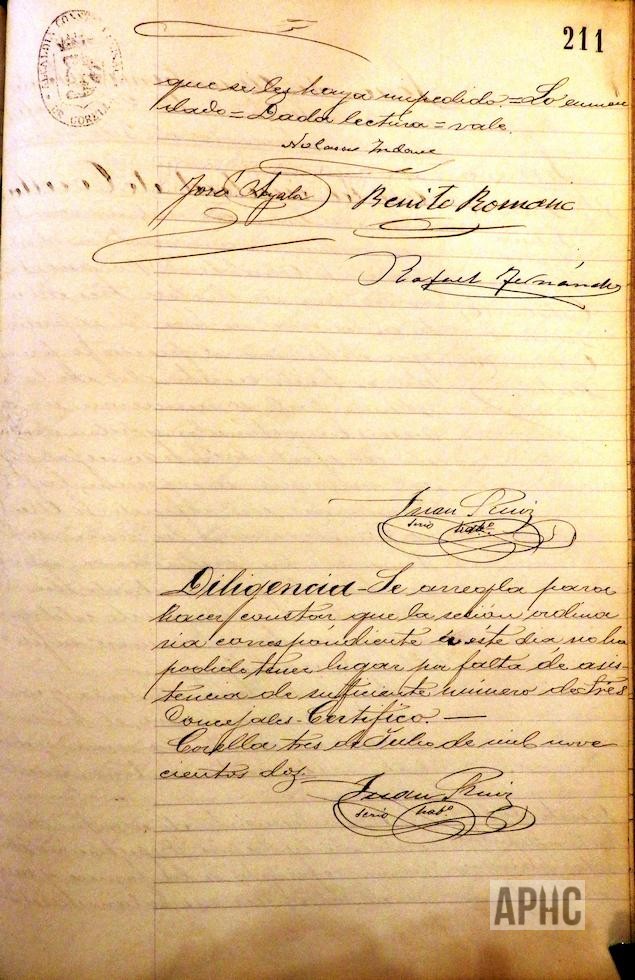 211
ALCALDIA CONSTITUCIONAL
DE CORELLA
que se les haya impedido.=Lo enmen
dado=Dada lectura=vale.
José Benito Romano
Rafael Fernández
Juan Ruiz
serio habº
Diligencia-Se arregla para
hacer constar que la sesión ordina
ria correspondiente a este día no ha
podido tener lugar por falta de asis-
tencia de suficiente número de Sres.
Concejales-Certifico.—
Corella tres de Julio de mil nove
cientos dos.
Juan Ruiz
serio habº
APHC